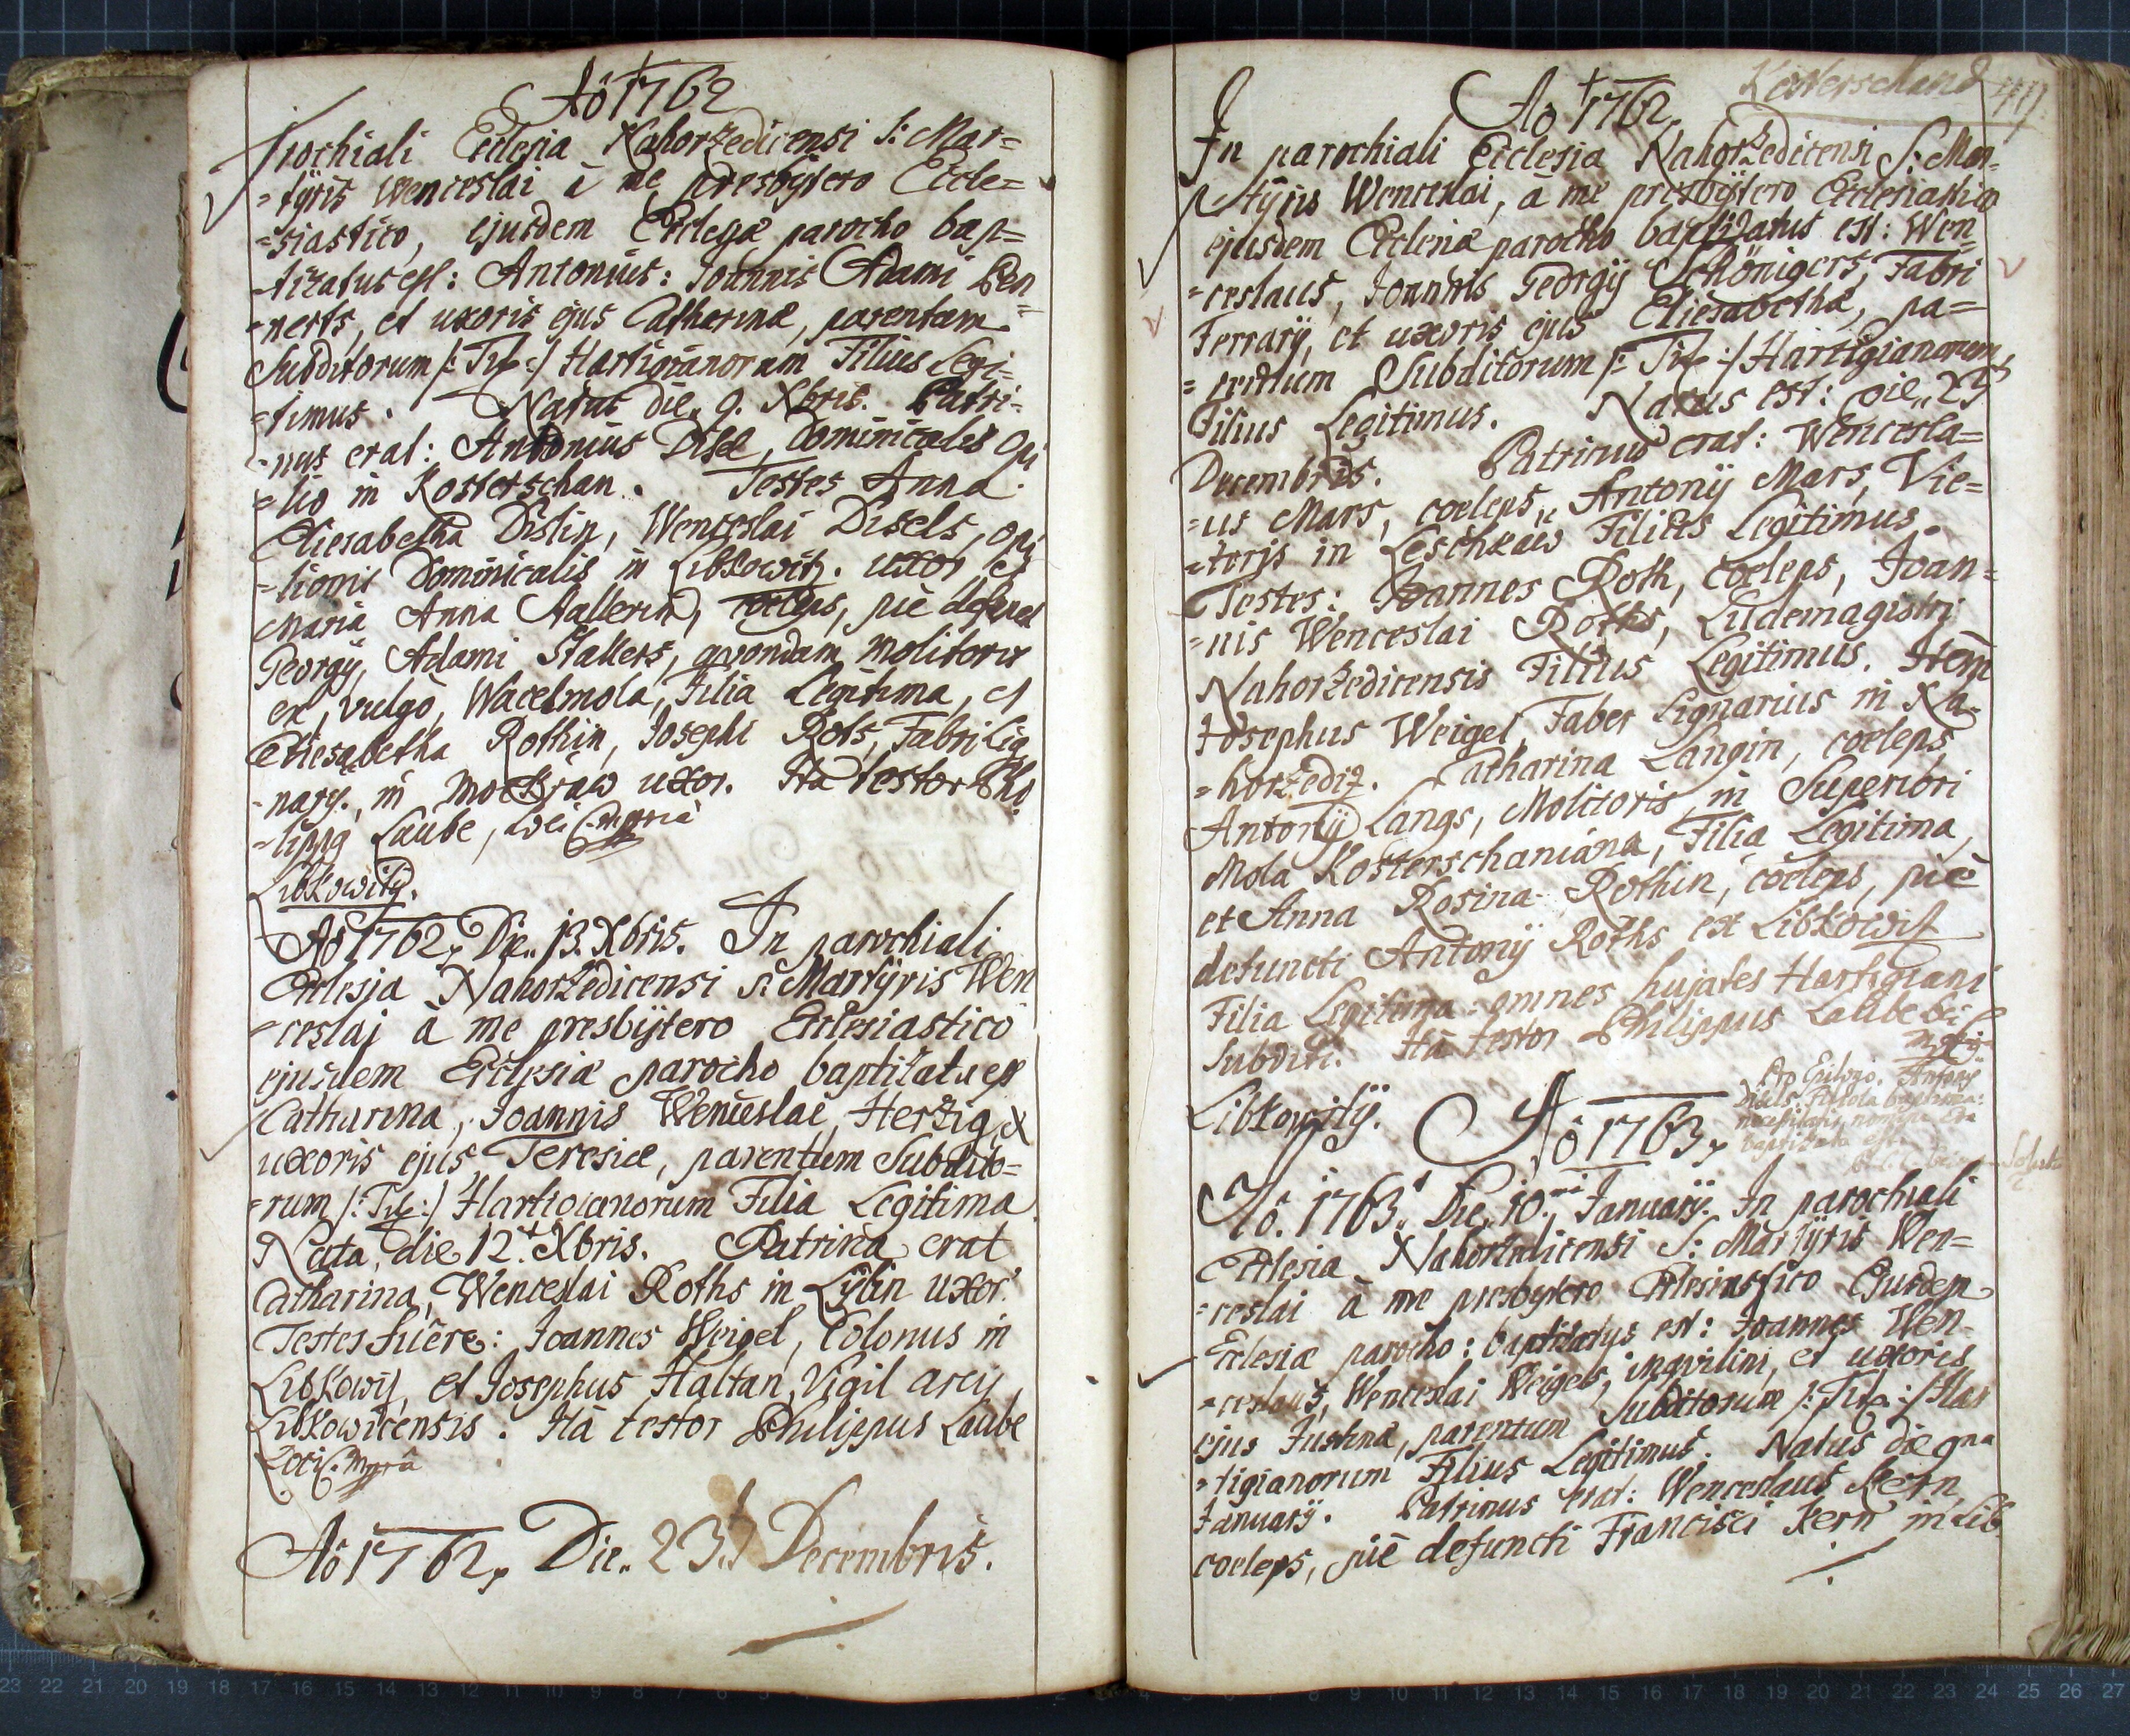 Aô 1762
rochiali Ecclesia Nahoržedicensi S: Mar=
=tÿris Wenceslai à me presbÿtero Eccle=
=siastico, ejusdem Ecclesiæ parocho bap=
=tizatus est: Antonius: Joannis Adami Pen=
=nerts, et uxoris ejus Catharinæ, parentum
Subditorum /: Tit :/ Hartigianorum Filius Legi=
=timus. Natus die 9. Xbris. Patri=
=nus erat: Antonius Disl, Dominicalis Opi
=lio in Kosterschan. Testes Anna
Eliesabetha Dislin, Wenceslai Disels, opi
=lionis Dominicalis in Libkowitz. uxor et
Maria Anna Hallerin, coeleps, piè defuncti
Georgÿ, Adami Hallers, qvondam Molitoris
ex, vulgo, Wacelmola, Filia Legitima, et
Eliesabetha Rothin, Josephi Rots, Fabri Lig
=narÿ. in Mockraw uxor. Ita testor Phi
=lippg Laube, Loci C. mppriâ
Libkowitz.
Aô 1762, Die 13. Xbris. In parochiali
Ecclesia Nahoržedicensi S: Martÿris Wen
=ceslai à me presbÿtero Ecclesiastico
ejusdem Ecclesiæ parocho baptizatu est
Catharina, Joannis Wenceslai Hertzig, et
uxoris ejus Teresiæ, parentum Subdito=
=rum /: Tit :/ Hartigianorum Filia Legitima
Nata, die 12. Xbris. Patrina erat
Catharina, Wenceslai Roths in Lÿbin uxor.
Testes fuêre: Joannes Weigel, Colonus in
Libkowitz, et Josephus Haltan, Vigil arcis
Libkowicensis. Ita testor Philippus Laube
Loci C. mppriâ
Aô 1762, Die 23 Decembris.
Kosterschand 49.
Ao 1762.
In parochiali Ecclesia Nahoržedicensi S: Mar=
=tÿris Wenceslai, à me presbÿtero Ecclesiastico
ejusdem Ecclesiæ parocho baptizatus est: Wen=
=ceslaus, Joannis Georgÿ Schönigers, Fabri
Ferrarÿ, et uxoris ejus Eliesabethæ, pa=
=rentum Subditorum /: Tit :/ Hartigianorum,
Filius Legitimus. Natus est: die 23
Decembris. Patrinus erat: Wencesla=
=us Mars, coeleps, Antonÿ Mars, Vie=
=toris in Leschkaw Filius Legitimus.
Testes: Joannes Roth, coeleps, Joan=
=nis Wenceslai Roths, Ludemagistri
Nahoržedicensis Filius Legitimus. Item
Josephus Weigel, Faber Lignarius in Na=
=horžediz. Catharina Langin, coeleps
Antonÿ Langs, Molitoris in Superiori
Mola Kosterschaniana, Filia Legitima,
et Anna Rosina Rothin, coeleps, piè
defuncti Antonÿ Roths ex Libkowitz
Filia Legitima omnes hujates Hartigiani
Subditi. Ita testor Philippus Laube Loci C
mppriâ
Libkowitz.
Aô 1763,
Aô. 1763. Die 10. Januarÿ. In parochiali
Ecclesia Nahoržedicensi S: Martÿris Wen=
=ceslai à me presbytero Ecclesiastico Ejusdem
Ecclesiæ parocho: baptizatus est: Joannes Wen=
=ceslaus, Wenceslai Weigels, inqvilini, et uxoris
ejus Justinæ, parentum Subditorum /: Tit :/ Har
=tigianorum Filius Legitimus. Natus die 9na
Januarÿ. Patrinus erat: Wenceslaus Kern,
coeleps, piè defuncti Francisci Kern in Lib